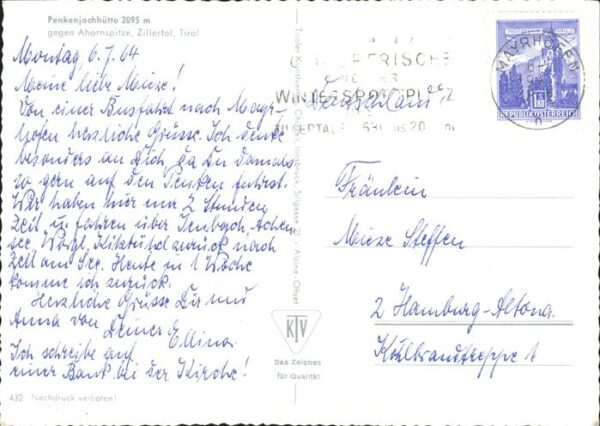 Penkenjochhütte 2095 m
gegen Ahornspitze, Zillertal, Tirol
Montag, 6.7.64
Meine liebe Mieze!
Von einer Busfahrt nach Mayr-
hofen herzliche Grüsse. Ich denke
besonders an Dich, da Du damals
so gern auf den Penken fuhrst.
Wir haben nur 2 Stunden
Zeit u. fahren über Jenbach, Achen-
see, Wörgl, Kitzbühel zurück nach
Zell am See. Heute in 1 Woche
komme ich zurück.
Herzliche Grüsse Dir und
Anna von Deiner Ellinor
Ich schreibe auf
einer Bank bei der Kirche!
432 Nachdruck verboten!
Tiroler Kunstverlag Chizzali, Innsbruck, Alpina-Offset
KTV
Das Zeichen
für Qualität
WINTERSPORTPLATZ
ZILLERTAL 630
MAYRHOFEN
1.80
REPUBLIK ÖSTERREICH
Deutschland!
Fräulein
Mieze Steffen
2 Hamburg-Altona
Köhlbrandtreppe 1